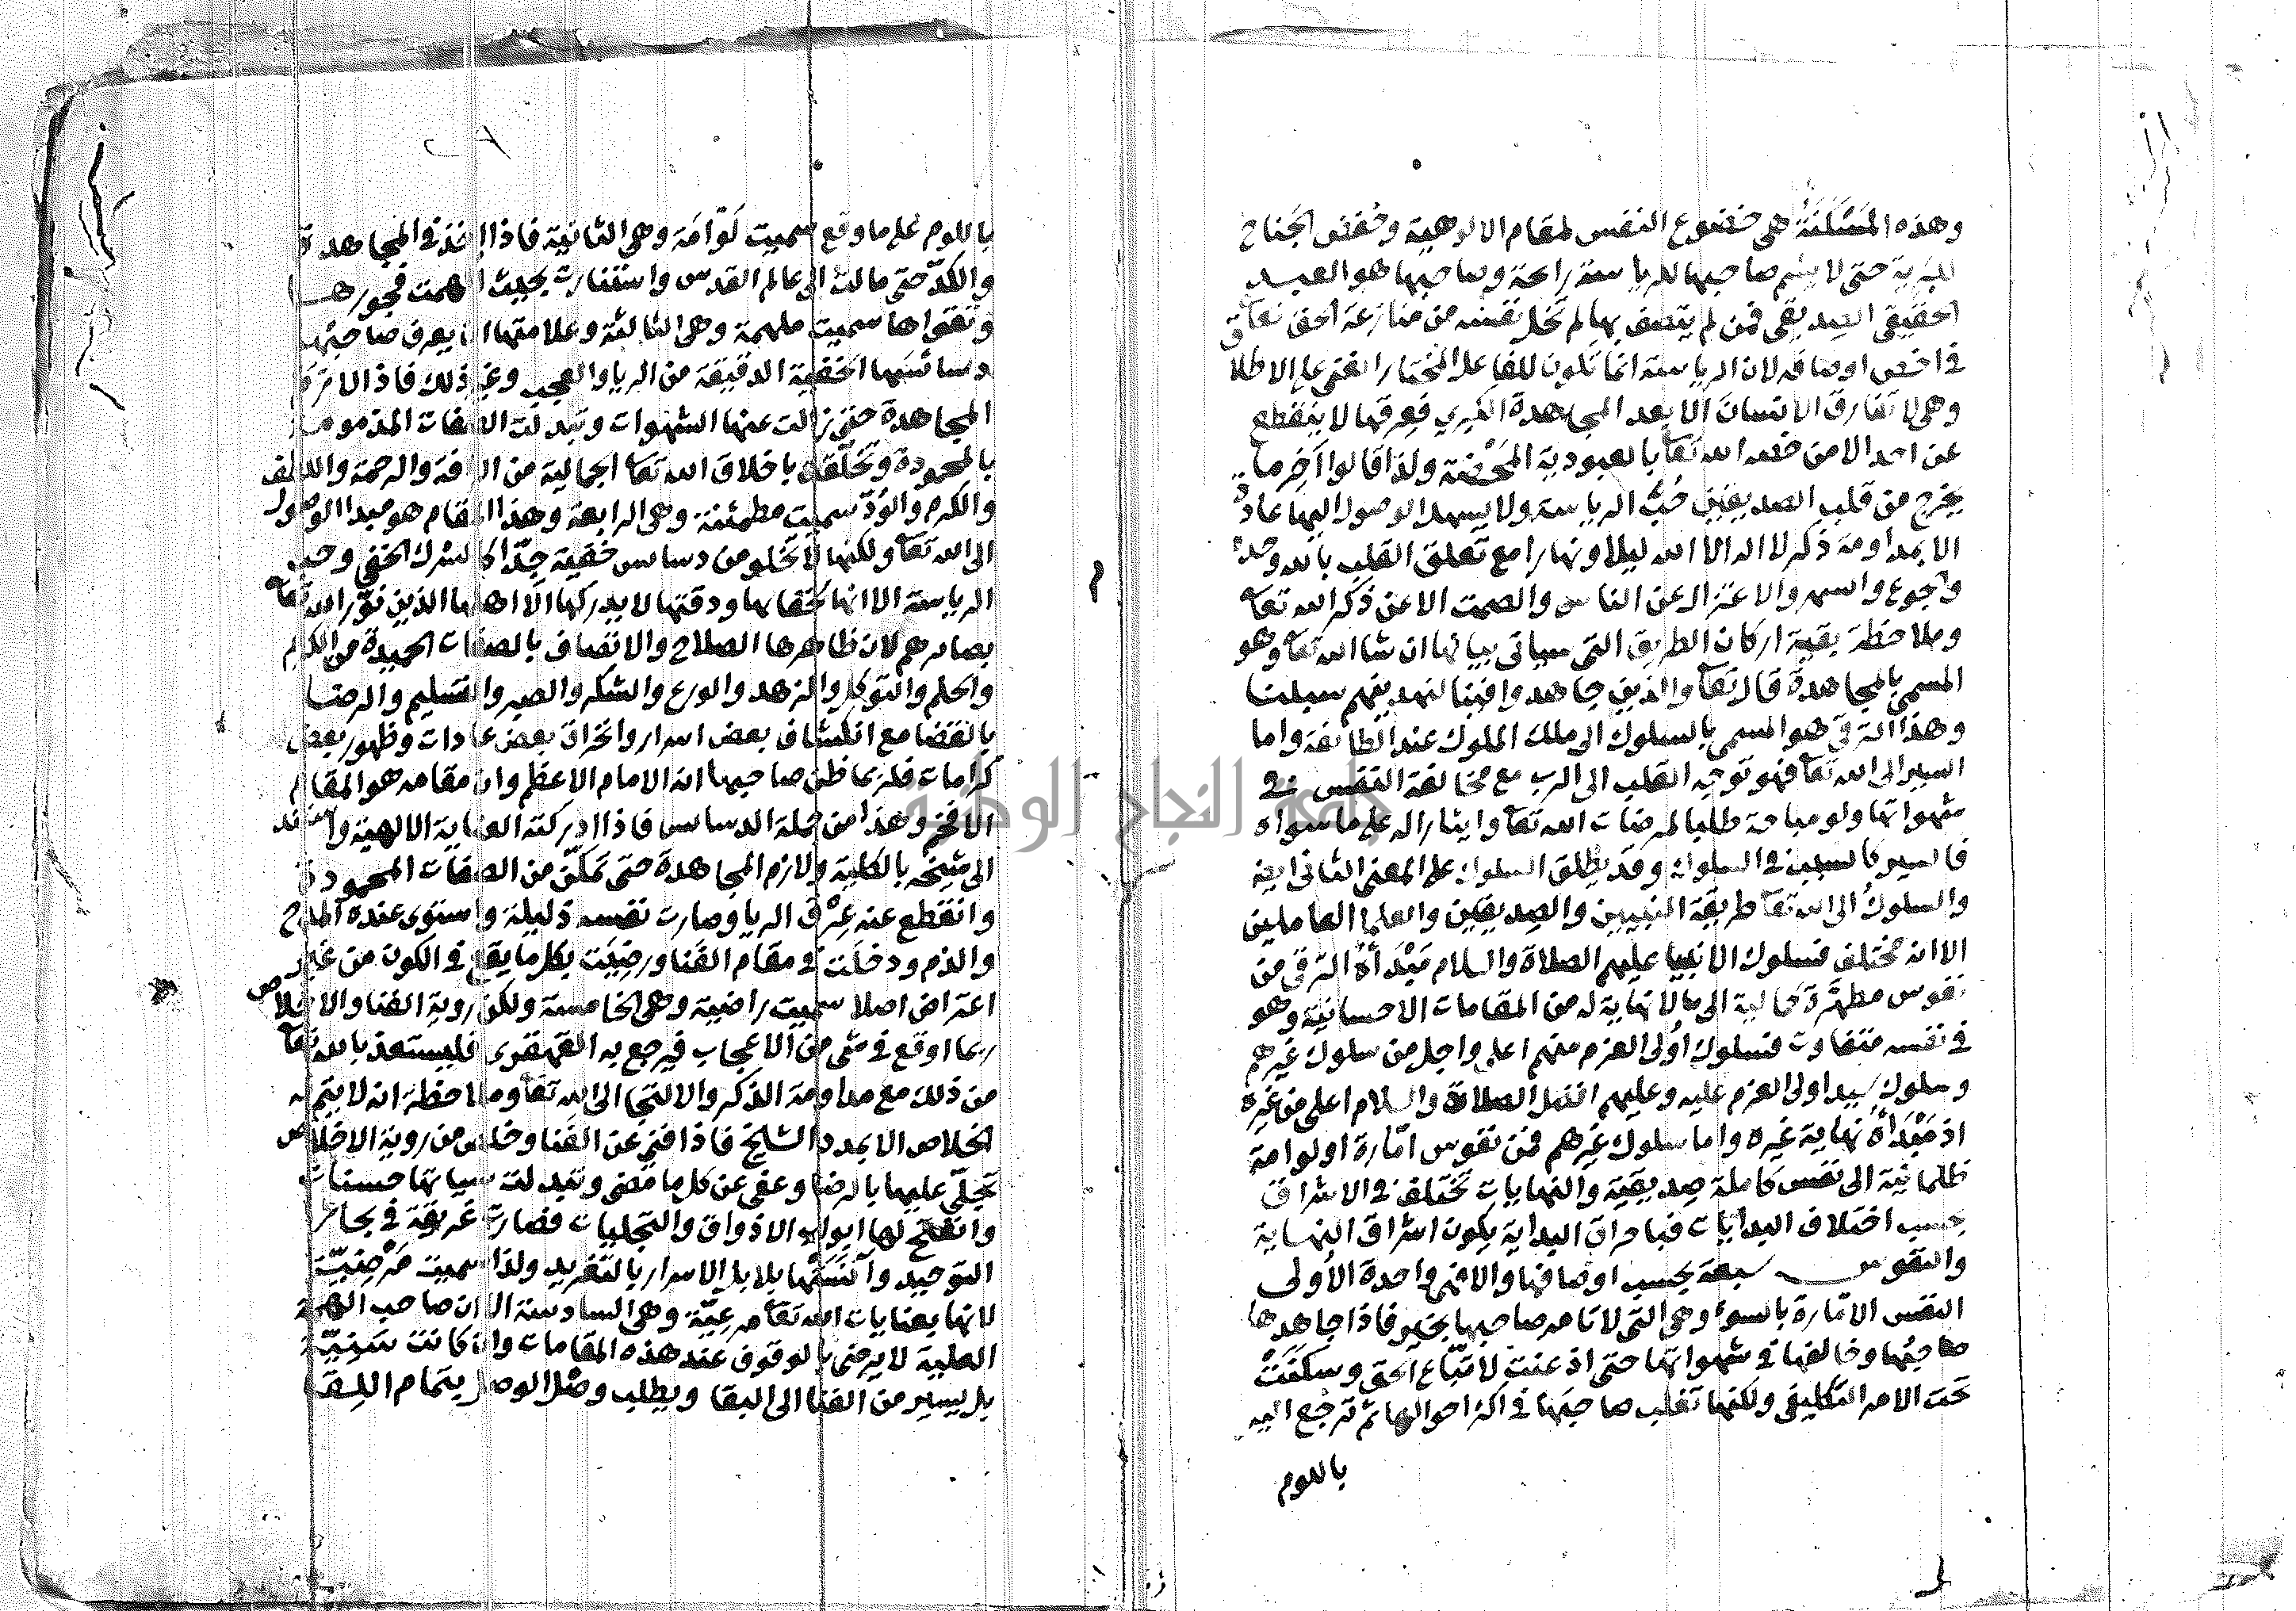 وهذه المَسْكَنَةُ هى خضوع النفس لمقام الالوهية وخفض الجناح
للبرية حتى لا يشم صاحبها للرياسة رائحة وصاحبها هو العبد
الحقيقى الصديقى فمن لم يتصف بها لم تخل نفسه من منازعة الحق تعالى
فى اخص اوصافه لان الرياسة انما تكون للفاعل المختار الغنى على الاطلاق
وهى لا تفارق الانسان الا بعد المجاهدة الكبرى فعرقها لا ينقطع
عن احد الا من خصه الله تعا بالعبودية المَحْضة ولذا قالوا آخر ما
يخرج من قلب الصديقين حُبُّ الرياسة ولا يسهل الوصول اليها عادة
الا بمداومة ذكر لا اله الا الله ليلا ونهارا مع تعلق القلب بالله وحده
والجوع والسهر والاعتزال عن الناس والصمت الا عن ذكر الله تعا
وملاحظة بقية اركان الطريق التى سياتى بيانها ان شا الله تعا وهو
المسمى بالمجاهدة قال تعا والذين جاهدوا فينا لنهدينهم سبلنا
وهذا الترقى هو المسمى بالسلوك الى ملك الملوك عند الطائفة واما
السير الى الله تعا فهو توجه القلب الى الرب مع مخالفة النفس فى
شهواتها ولو مباحة طلبا لمرضات الله تعا وايثارا له على ما سواه
فالسير كالسبب فى السلوك وقد يطلق السلوك على المعنى الثانى ايضا
والسلوكُ الى الله تعا طريقة النبيين والصديقين والعلما العاملين
الا انه مختلف فسلوك الانبيا عليهم الصلاة والسلام مَبْدَأهُ الترقى من
نفوس مطهَّرة كمالية الى ما لا نهاية له من المقامات الاحسانية وهو
فى نفسه متفاوت فسلوك اُولى العزم منهم اعلى واجل من سلوك غيرهم
وسلوك سيد اولى العزم عليه وعليهم افضل الصلاة والسلام اعلى من غيره
اذ مَبْدَأهُ نهاية غيره واما سلوك غيرهم فمن نفوس امّارة او لوامة
ظلمانية الى نفس كاملة صديقية والنهايات تختلف فى الاشراق
بحسب اختلاف البدايات فباحراق البداية يكون اشراق النهاية
والنفوس سبعة بحسب اوصافها والا فهى واحدة الاُولى
النفس الامّارة بالسوء وهى التى لا تامر صاحبها بخير فاذا جاهدها
صاحبُها وخالفها فى شهواتها حتى اذعنت لاتّباع الحق وسكنَتْ
تحت الامر التكليفى ولكنها تغلب صاحبَها فى اكثر احوالها ثم ترجع اليه
باللوم
باللوم على ما وقع سميت لَوّامَة وهى الثانية فاذا اخذ فى المجاهدة
والكدّ حتى مالت الى عالم القدس واستنارت بحيث اُلهمت فجورها
وتقواها سميت ملهمة وهى الثالثة وعلامتها ان يعرف صاحبُها
دسائسَها الخفية الدقيقة من الريا والعجب وغير ذلك فاذا لازم
المجاهدة حتى زالت عنها الشهوات وتبدلت الصفات المذمومة
بالمحمودة وتخلّقت باخلاق الله تعا الجمالية من الرافة والرحمة واللطف
والكرم والوُدّ سميت مطمئنة وهى الرابعة وهذا المقام هو مبدا الوصول
الى الله تعا ولكنها لا تخلو من دسائس خفية جدّا كالشرك الخفى وحب
الرياسة الا انها لخفائها ودقتها لا يدركها الّا اهلها الذين نوّر الله تعا
بصائرهم لان ظاهرها الصلاح والاتصاف بالصفات الحميدة من الكرم
والحلم والتوكل والزهد والورع والشكر والصبر والتسليم والرضا
بالقضا مع انكشاف بعض اسرار وانخراق بعض عادات وظهور بعض
كرامات فلربما ظن صاحبها انه الامام الاعظم وان مقامه هو المقام
الافخر وهذا من جملة الدسائس فاذا ادركته العناية الالهية واستند
الى شيخه بالكلية ولازم المجاهدة حتى تمكّن من الصفات المحمودة
وانقطع عنه عِرْق الريا وصارت نفسه ذليلة واستوى عنده المدح
والذم ودخلَت فى مقام الفنا ورضِيَت بكل ما يقع فى الكون من غير
اعتراض اصلا سميت راضية وهى الخامسة ولكن روية الفنا والاخلاص
ربما اوقع فى شى من الاعجاب فيرجع به القهقرى فليستعذ بالله تعا
من ذلك مع مداومة الذكر والالتجا الى الله تعا وملاحظة انه لا يتم له
الخلاص الا بمدد الشيخ فاذا فنى عن الفنا وخلص من روية الاخلاص
تجلّى عليها بالرضا وعفى عن كل ما مضى وتبدلت سياتها حسنات
وانفتح لها ابواب الاذواق والتجليات فصارت غريقة فى بحار
التوحيد وآنسَتْها بلابل الاسرار بالتغريد ولذا سميت مَرْضيّة
لانها بعنايات الله تعا مرعيّة وهى السادسة الا ان صاحب الهمة
العلية لا يرضى بالوقوف عند هذه المقامات وان كانت سَنِيّة
بل يسير من الفنا الى البقا ويطلب وصْل الوصل بتمام اللقا
جامعة النجاح الوطنية